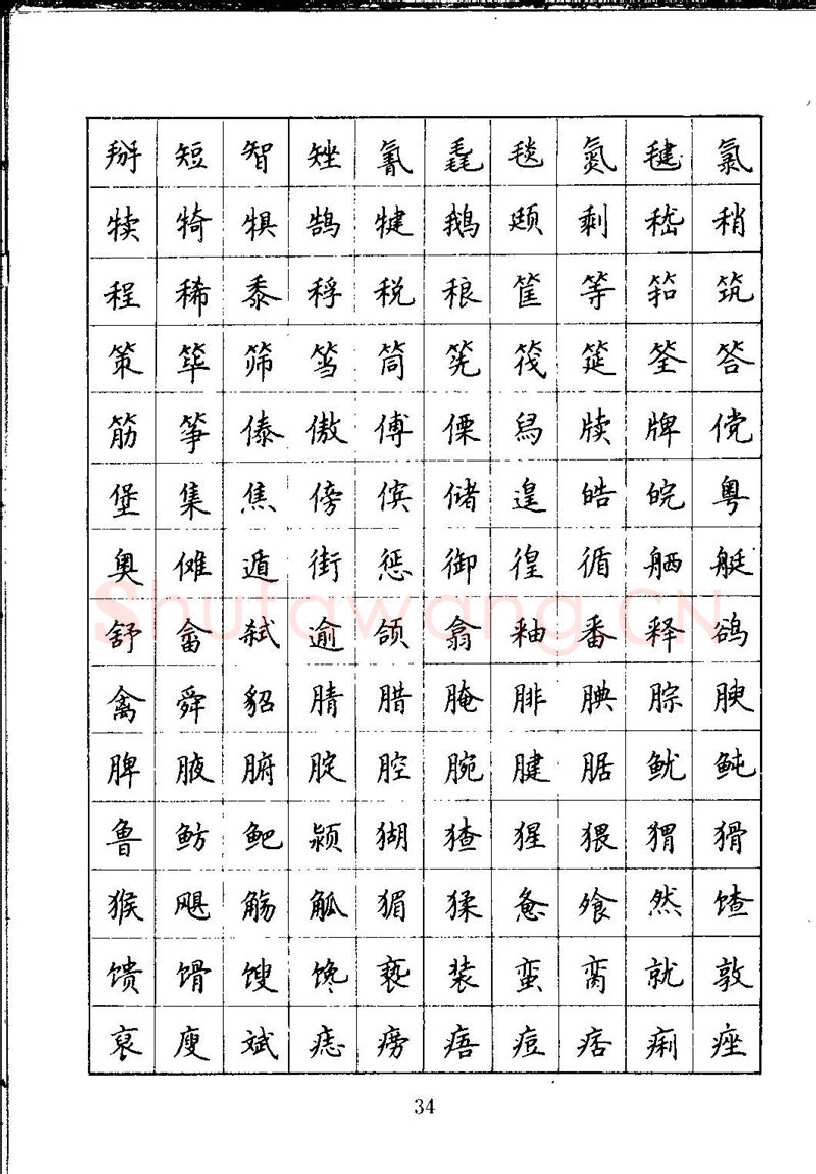 掰 短 智 矬 氰 毳 毯 氮 毽 氯
犊 犄 犋 鹄 犍 鹅 颋 剩 嵇 稍
程 稀 黍 稃 税 稂 筐 等 筘 筑
策 筚 筛 筜 筒 筅 筏 筵 筌 答
筋 筝 傣 傲 傅 傈 舄 牍 牌 傥
堡 集 焦 傍 傧 储 遑 皓 皖 粤
奥 傩 遁 街 惩 御 徨 循 舾 艇
舒 畲 弑 逾 颌 翕 釉 番 释 鹆
禽 舜 貂 腈 腊 腌 腓 腆 腙 腴
脾 腋 腑 腚 腔 腕 腱 腒 鱿 鲀
鲁 鲂 鲃 颍 猢 猹 猩 猥 猬 猾
猴 飓 觞 觚 猸 猱 惫 飧 然 馇
馈 馉 馊 馋 亵 装 蛮 脔 就 敦
裒 廋 斌 痣 痨 痦 痘 痞 痢 痤
34
Shufawang.CN